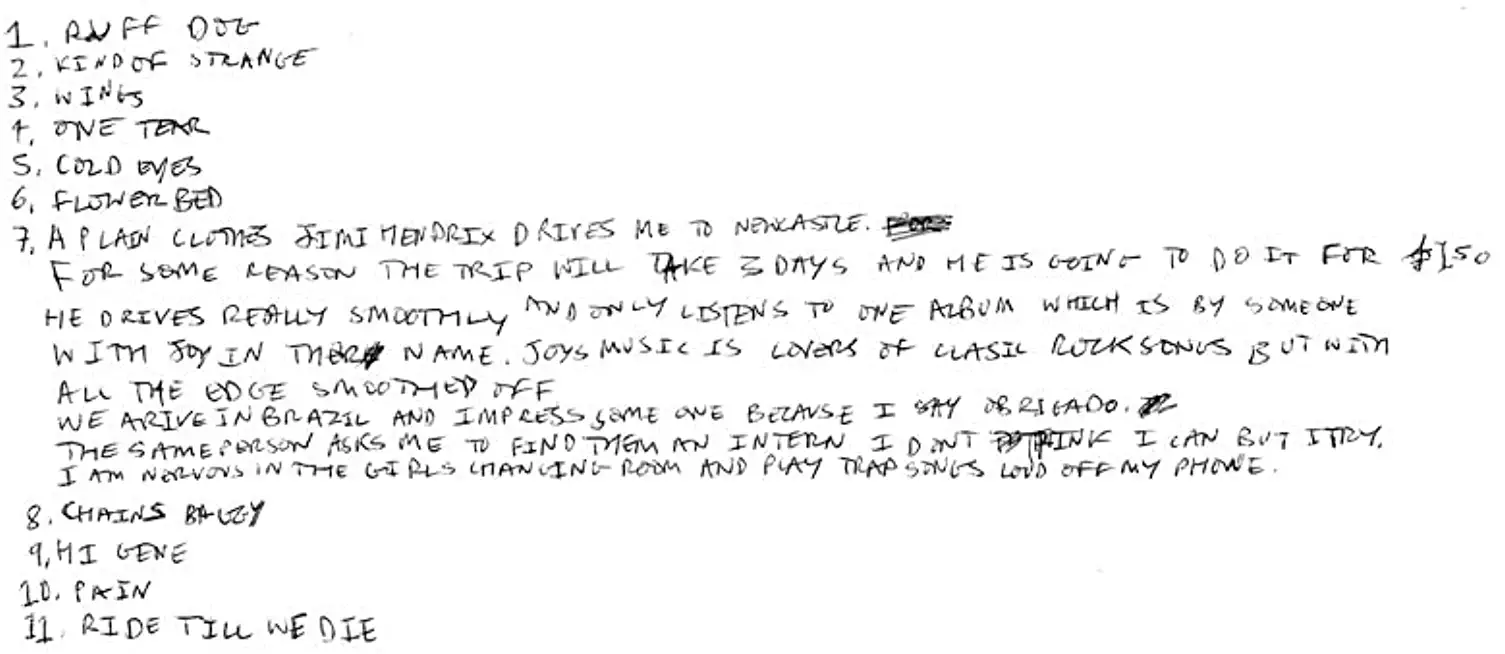 1. RUFF DOG
2. KIND OF STRANGE
3. WINGS
4. ONE TEAR
5. COLD EYES
6. FLOWER BED
7. A PLAIN CLOTHES JIMI HENDRIX DRIVES ME TO NEWCASTLE.
FOR SOME REASON THE TRIP WILL TAKE 3 DAYS AND HE IS GOING TO DO IT FOR $150
HE DRIVES REALLY SMOOTHLY AND ONLY LISTENS TO ONE ALBUM WHICH IS BY SOMEONE
WITH JOY IN THER NAME. JOYS MUSIC IS COVERS OF CLASIC ROCK SONGS BUT WITH
ALL THE EDGE SMOOTHED OFF
WE ARIVE IN BRAZIL AND IMPRESS SOME ONE BECAUSE I SAY OBRIGADO.
THE SAME PERSON ASKS ME TO FIND THEM AN INTERN I DONT THINK I CAN BUT I TRY.
I AM NERVOUS IN THE GIRLS CHANGING ROOM AND PLAY TRAP SONGS LOUD OFF MY PHONE.
8. CHAINS BAGGY
9. HI GENE
10. PAIN
11. RIDE TILL WE DIE